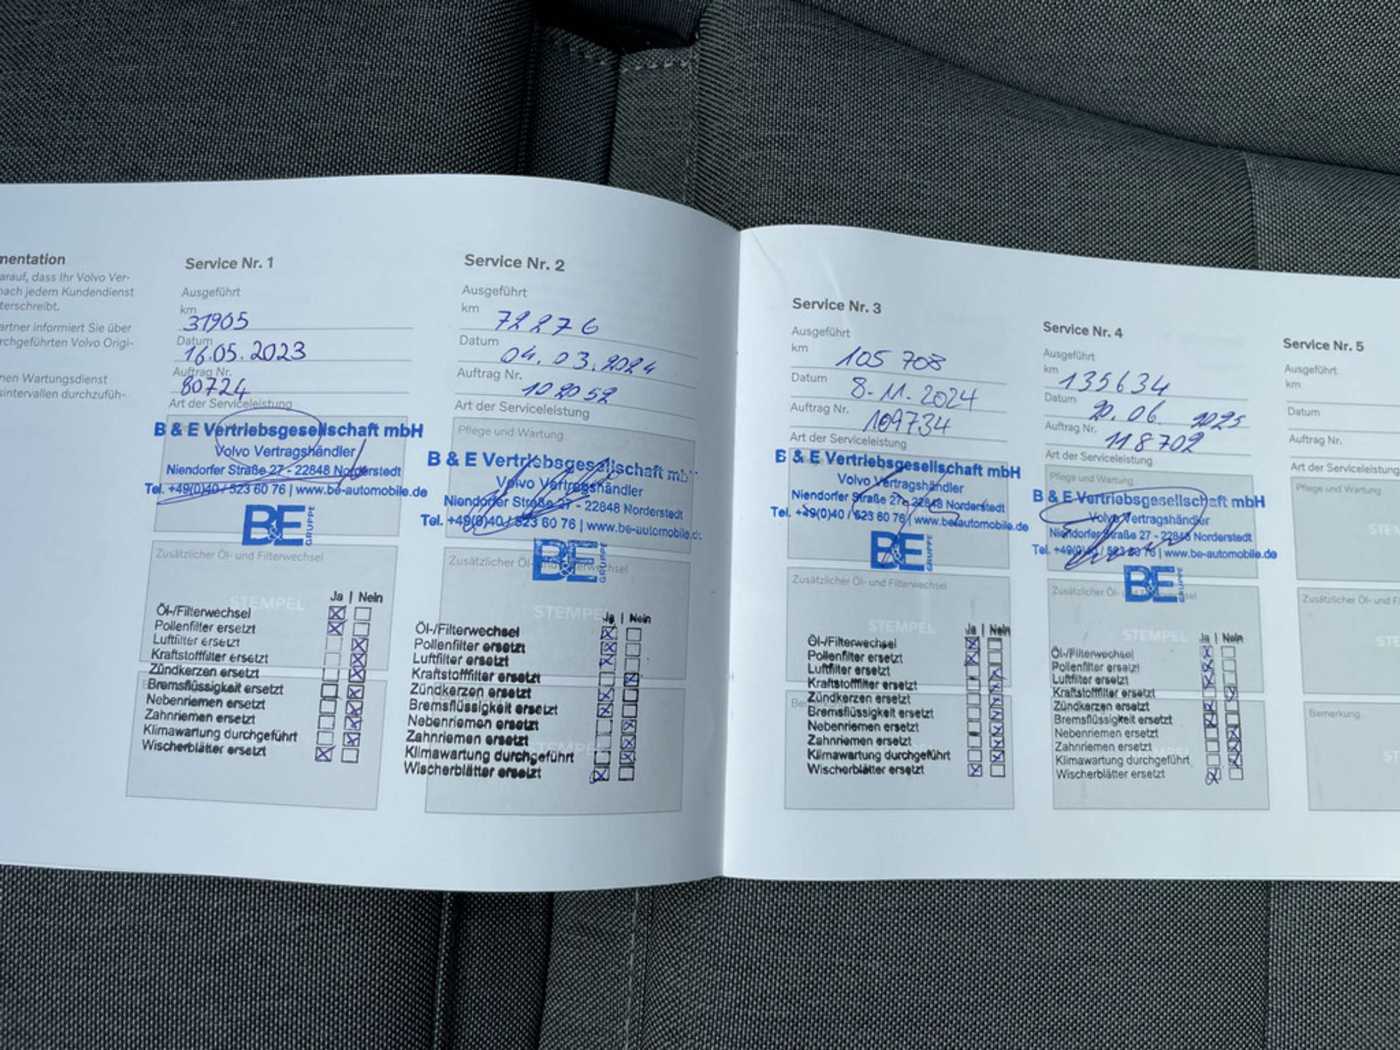 mentation
arauf, dass Ihr Volvo Ver-
nach jedem Kundendienst
terschreibt.
artner informiert Sie über
rchgeführten Volvo Origi-
nen Wartungsdienst
sintervallen durchzufüh-
Service Nr. 1
Ausgeführt
km
31905
Datum
16.05.2023
Auftrag Nr.
80724
Art der Serviceleistung
B & E Vertriebsgesellschaft mbH
Volvo Vertragshändler
Niendorfer Straße 27 - 22848 Norderstedt
Tel. +49(0)40 / 523 60 76 | www.be-automobile.de
B&E GRUPPE
Zusätzlicher Öl- und Filterwechsel
STEMPEL
Ja | Nein
Öl-/Filterwechsel
Pollenfilter ersetzt
Luftfilter ersetzt
Kraftstofffilter ersetzt
Zündkerzen ersetzt
Bremsflüssigkeit ersetzt
Nebenriemen ersetzt
Zahnriemen ersetzt
Klimawartung durchgeführt
Wischerblätter ersetzt
Service Nr. 2
Ausgeführt
km
72276
Datum
04.03.2024
Auftrag Nr.
102052
Art der Serviceleistung
Pflege und Wartung
B & E Vertriebsgesellschaft mb
Volvo Vertragshändler
Niendorfer Straße 27 - 22848 Norderstedt
Tel. +49(0)40 / 523 60 76 | www.be-automobile.de
B&E GRUPPE
Zusätzlicher Öl- und Filterwechsel
STEMPEL
Ja | Nein
Öl-/Filterwechsel
Pollenfilter ersetzt
Luftfilter ersetzt
Kraftstofffilter ersetzt
Zündkerzen ersetzt
Bremsflüssigkeit ersetzt
Nebenriemen ersetzt
Zahnriemen ersetzt
Klimawartung durchgeführt
Wischerblätter ersetzt
Service Nr. 3
Ausgeführt
km
105 708
Datum
8.11.2024
Auftrag Nr.
109734
Art der Serviceleistung
B & E Vertriebsgesellschaft mbH
Volvo Vertragshändler
Niendorfer Straße 27 - 22848 Norderstedt
Tel. +49(0)40 / 523 60 76 | www.be-automobile.de
B&E GRUPPE
Zusätzlicher Öl- und Filterwechsel
STEMPEL
Ja | Nein
Öl-/Filterwechsel
Pollenfilter ersetzt
Luftfilter ersetzt
Kraftstofffilter ersetzt
Zündkerzen ersetzt
Bremsflüssigkeit ersetzt
Nebenriemen ersetzt
Zahnriemen ersetzt
Klimawartung durchgeführt
Wischerblätter ersetzt
Service Nr. 4
Ausgeführt
km
135634
Datum
20.06.2025
Auftrag Nr.
118702
Art der Serviceleistung
Pflege und Wartung
B & E Vertriebsgesellschaft mbH
Volvo Vertragshändler
Niendorfer Straße 27 - 22848 Norderstedt
Tel. +49(0)40 / 523 60 76 | www.be-automobile.de
B&E GRUPPE
Zusätzlicher Öl- und Filterwechsel
STEMPEL
Ja | Nein
Öl-/Filterwechsel
Pollenfilter ersetzt
Luftfilter ersetzt
Kraftstofffilter ersetzt
Zündkerzen ersetzt
Bremsflüssigkeit ersetzt
Nebenriemen ersetzt
Zahnriemen ersetzt
Klimawartung durchgeführt
Wischerblätter ersetzt
Service Nr. 5
Ausgeführt
km
Datum
Auftrag Nr.
Art der Serviceleistung
Pflege und Wartung
STEM
Zusätzlicher Öl- und F
ST
Bemerkung
ST